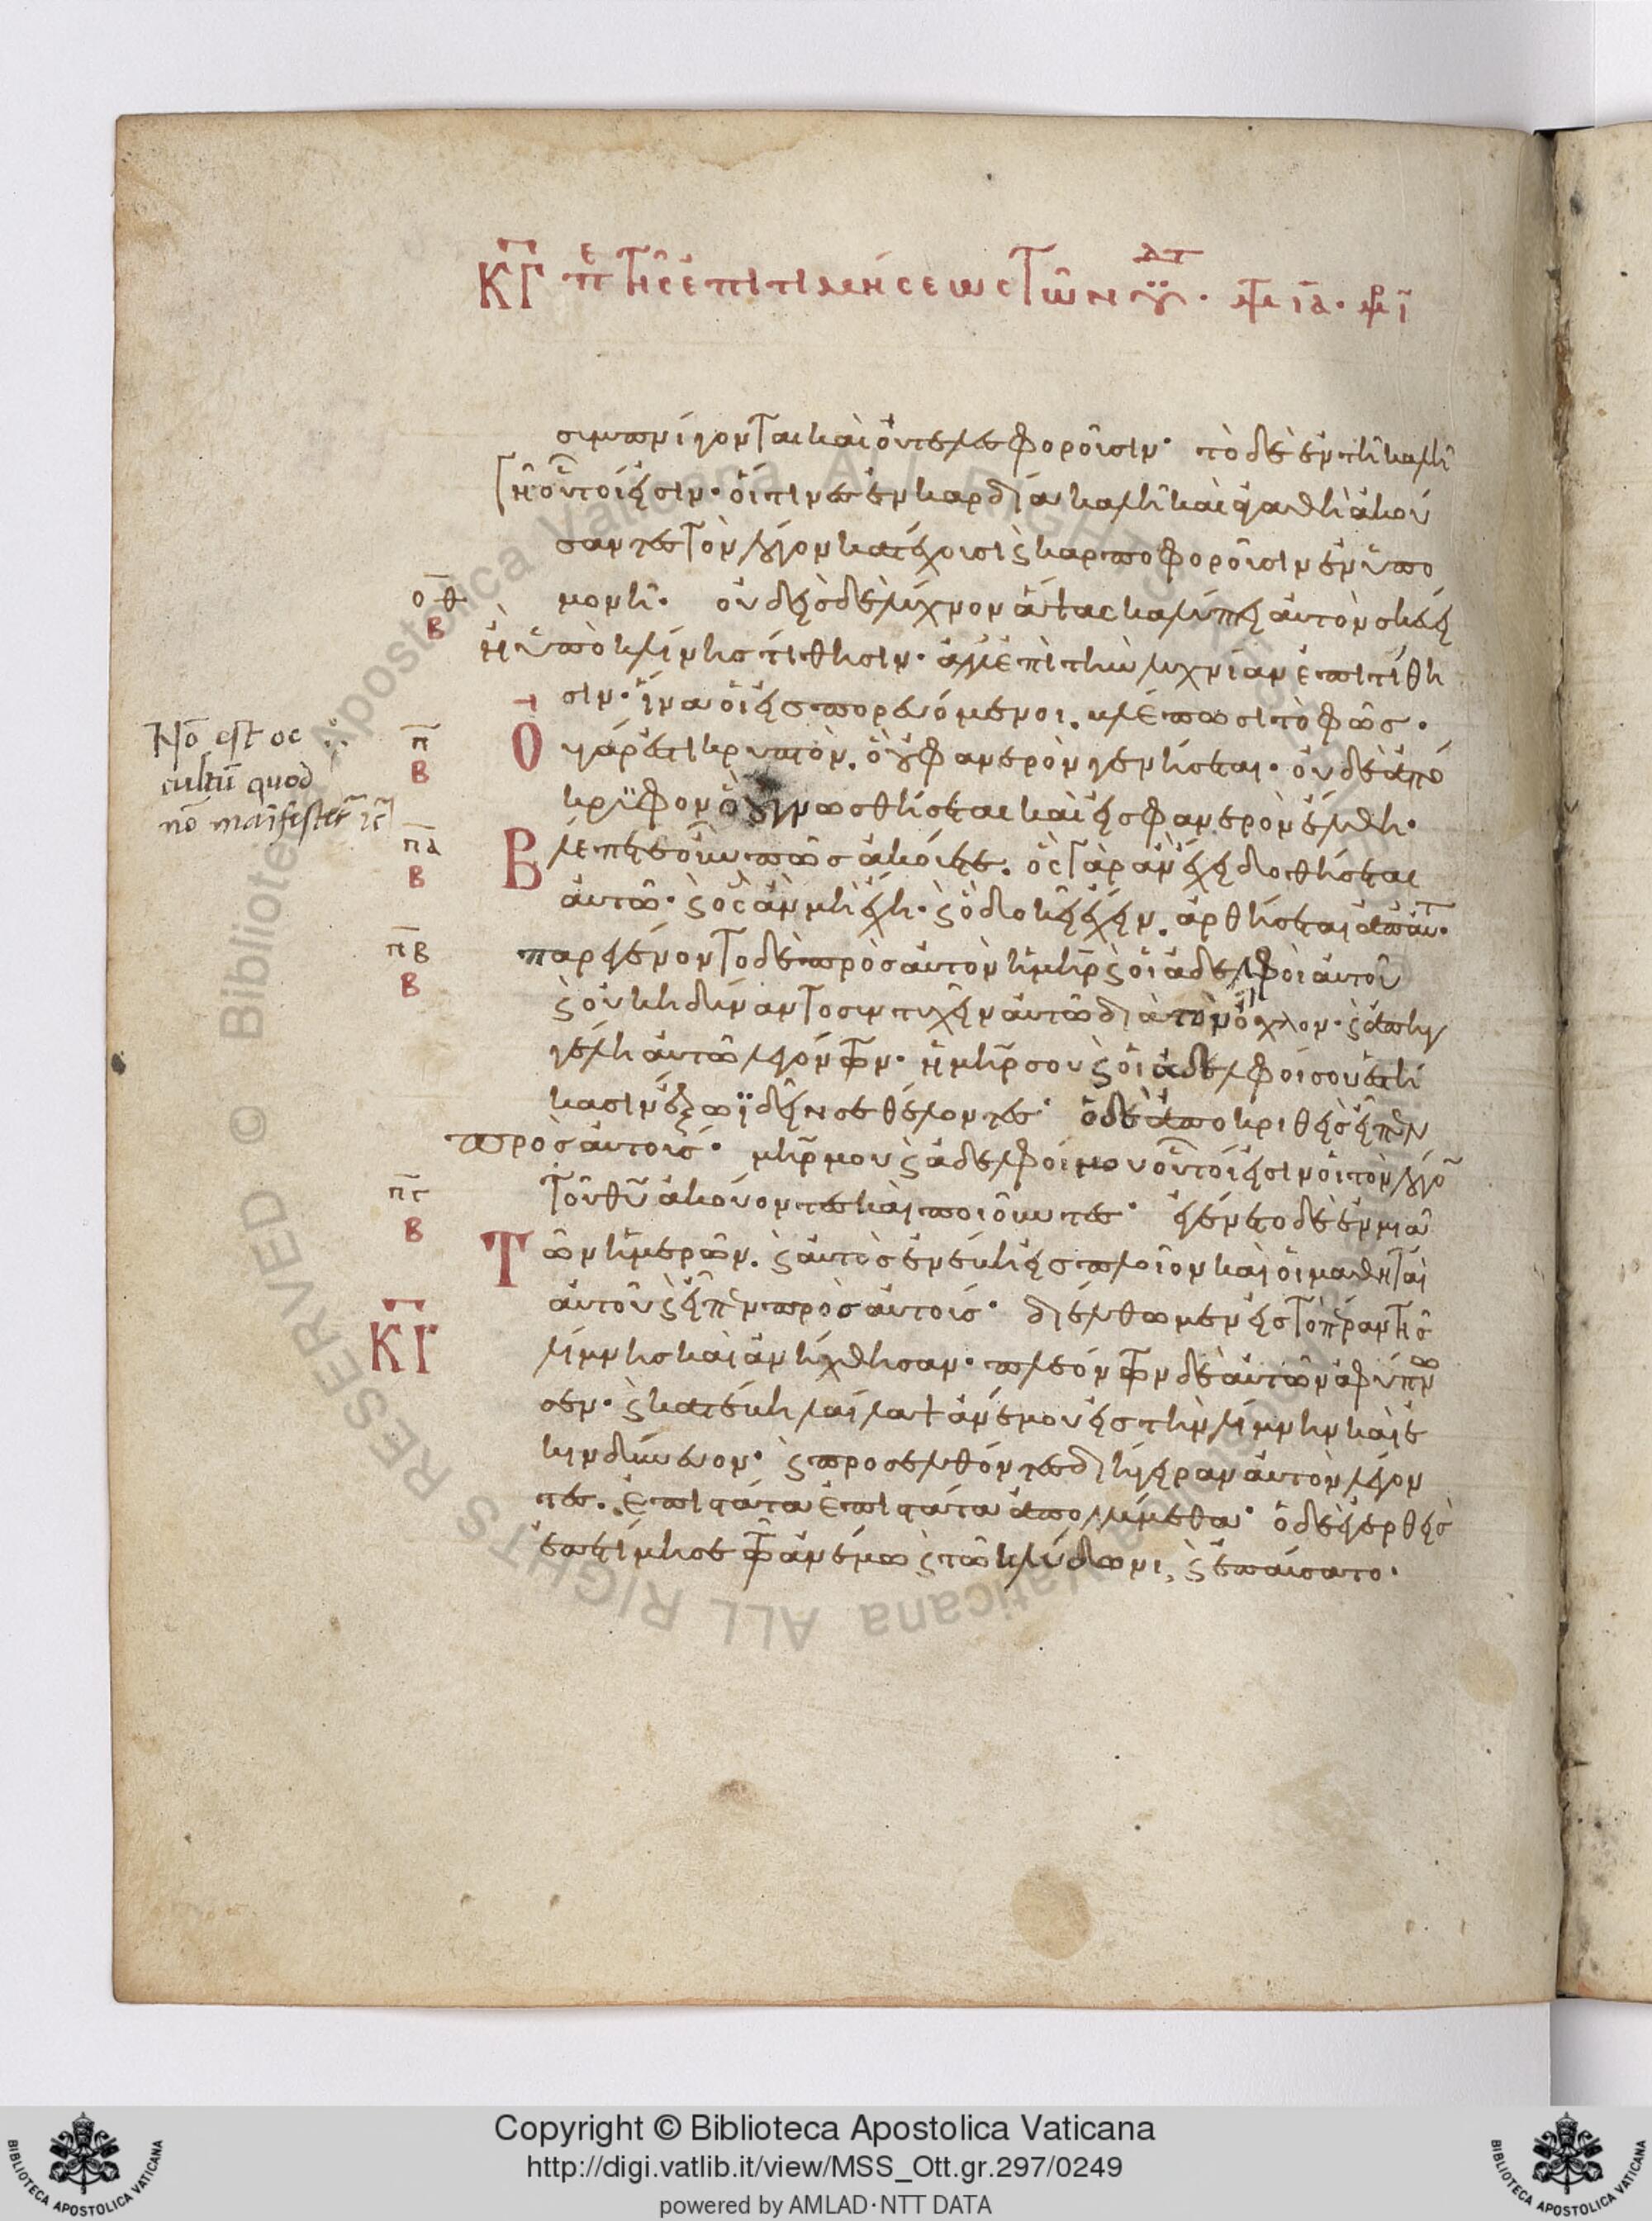 ΚΓ πε τῆς ἐπιτιμήσεως τῶν ϋδτ. μ ια. μρ ι
συμπνίγονται καὶ οὐ τελεσφοροῦσιν· τὸ δὲ ἐν τῆ καλῆ
γῆ οὗτοί εἰσιν· οἵτινες ἐν καρδία καλῆ καὶ ἀγαθῆ ἀκού
σαντες τὸν λόγον κατέχουσι ϗ καρποφοροῦσιν ἐν ὑπο
οθ
β
μονῆ· οὐδεὶς δὲ λύχνον ἅψας καλύπτει αὐτὸν σκεύει
ἢ ὑπὸ κλίνης τίθησιν· ἀλλ' ἐπὶ τὴν λυχνίαν ἐπιτίθη
σιν· ἵνα οἱ εἰσπορευόμενοι, βλέπωσι τὸ φῶς·
Nō est oc
cultū quod
nō manifester̄
π
β
Οὐ γάρ ἐστι κρυπτὸν, ὃ οὐ φανερὸν γενήσεται· οὐδὲ ἀπό
κρυφον ὃ οὐ γνωσθήσεται καὶ εἰς φανερὸν ἔλθη·
πα
β
Βλέπετε οὖν πῶς ἀκούετε. ὃς γὰρ ἂν ἔχει δοθήσεται
αὐτῶ· ϗ ὃς ἂν μὴ ἔχη· ϗ ὃ δοκεῖ ἔχειν. ἀρθήσεται ἀπ' αὐτ·
πβ
β
παρεγένοντο δὲ πρὸς αὐτὸν ἡ μηρ ϗ οἱ ἀδελφοὶ αὐτοῦ
ϗ οὐκ ἠδύναντο συντυχεῖν αὐτῶ διὰ τὸν ὄχλον· ϗ ἀπηγ
γέλη αὐτῶ λεγόντων· ἡ μηρ σου ϗ οἱ ἀδελφοί σου ἑστή
κασιν ἔξω ϊδεῖν σε θέλοντες· ὁ δὲ ἀποκριθεὶς εἶπεν
πρὸς αὐτούς· μηρ μου ϗ ἀδελφοί μου οὗτοί εἰσιν οἱ τὸν λόγο
πγ
β
τοῦ θυ ἀκούοντες καὶ ποιοῦντες· ἐγένετο δὲ ἐν μιᾶ
Τῶν ἡμερῶν. ϗ αὐτὸς ἐνέβη εἰς πλοῖον καὶ οἱ μαθηταὶ
ΚΓ
αὐτοῦ ϗ εἶπεν πρὸς αὐτούς· διέλθωμεν εἰς τὸ πέραν τῆς
λίμνης καὶ ἀνήχθησαν· πλεόντων δὲ αὐτῶν ἀφύπνω
σεν· ϗ κατέβη λαίλαψ ἀνέμου εἰς τὴν λίμνην καὶ ἐ
κινδύνευον· ϗ προσελθόντες διήγειραν αὐτὸν λέγον
τες. ἐπιστάτα ἐπιστάτα ἀπολλύμεθα· ὁ δὲ ἐγερθεὶς
ἐπετίμησε τῶ ἀνέμω ϗ τῶ κλύδωνι, ϗ ἐπαύσατο·
Copyright © Biblioteca Apostolica Vaticana
http://digi.vatlib.it/view/MSS_Ott.gr.297/0249
powered by AMLAD·NTT DATA
BIBLIOTECA APOSTOLICA VATICANA
BIBLIOTECA APOSTOLICA VATICANA
© Biblioteca Apostolica Vaticana ALL RIGHTS RESERVED